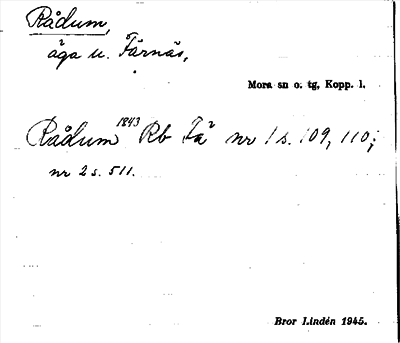 Rådum,
äga u. Färnäs,
Mora sn o. tg, Kopp. l.
Rådum 1843 Rb Fä² nr 1 s. 109, 110;
nr 2 s. 511.
Bror Lindén 1945.